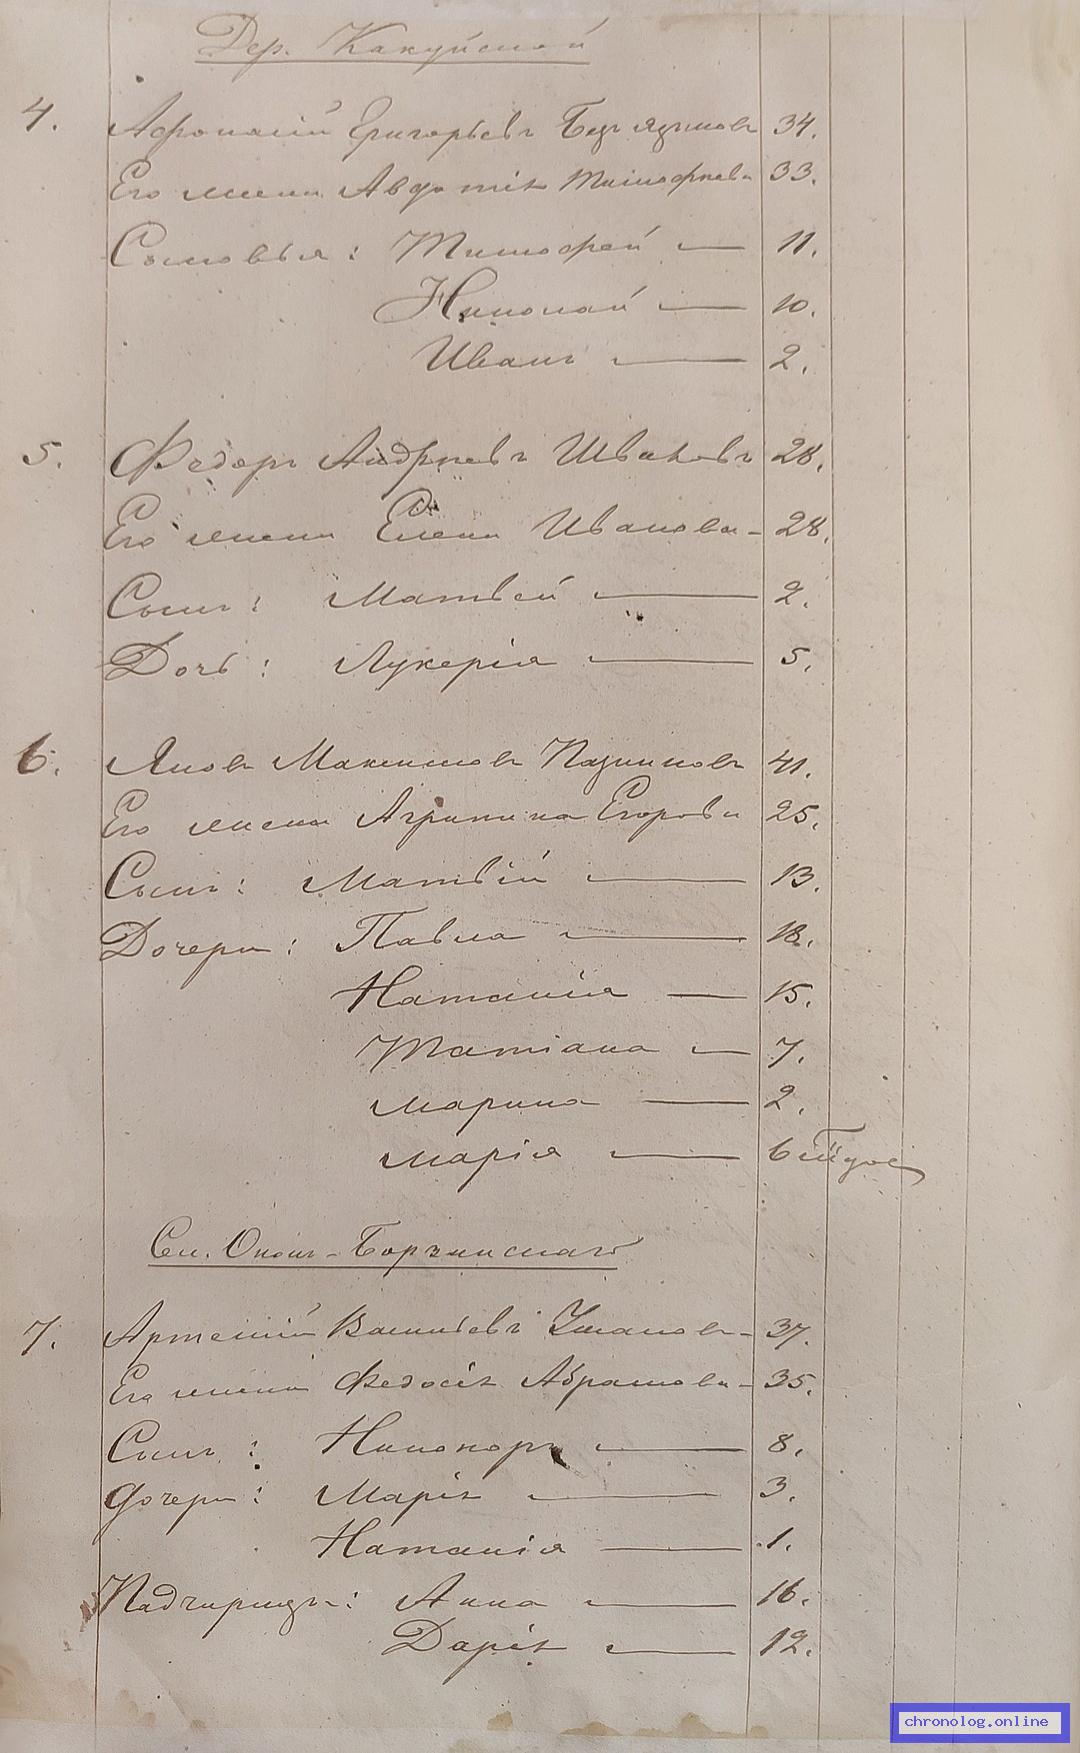 Дер. Какуйской
4. Афонасій Григорьевъ Безъязыковъ 34.
Его жена Авдотія Тимофеева 33.
Сыновья: Тимофей — 11.
Николай — 10.
Иванъ — 2.
5. Федоръ Андреевъ Шваковъ 28.
Его жена Елена Иванова - 28.
Сынъ: Матвей — 2.
Дочь: Лукерія — 5.
6. Яковъ Максимовъ Пазниковъ 41.
Его жена Агрипина Егорова 25.
Сынъ: Матвій — 13.
Дочери: Павла — 18.
Наталія — 15.
Татіана — 7.
Марина — 2.
Марія — 6
Сел. Онон-Борзинскаго
7. Артемій Васильевъ Улановъ - 37.
Его жена Федосія Абрамова - 35.
Сынъ: Никоноръ — 8.
Дочери: Марія — 3.
Наталія — 1.
Падчирицъ: Анна — 16.
Дарія — 12.
chronolog.online